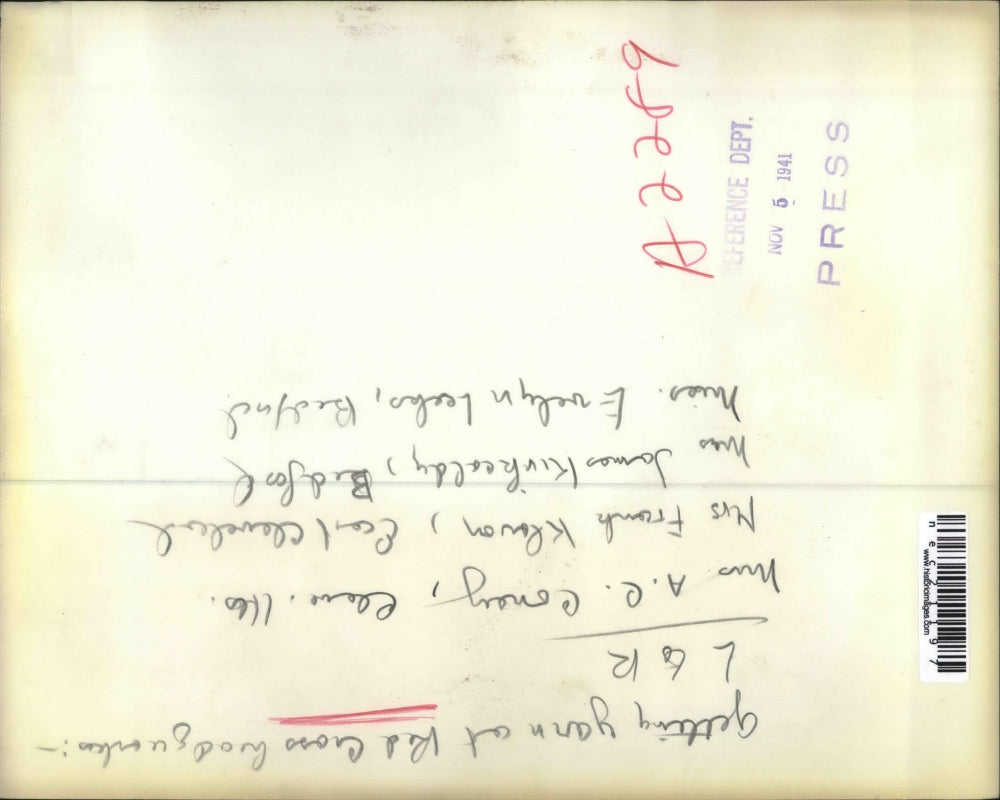 Getting yarn at Red Cross headquarters:-
L to R
Mrs. A.C. Coney, Cleve. Hts.
Mrs Frank Klavon, East Cleveland
Mrs James Kirkcaldy, Bedford
Miss. Evelyn Leeks, Bedford
A2289
REFERENCE DEPT.
NOV 5 1941
PRESS
www.historicimages.com